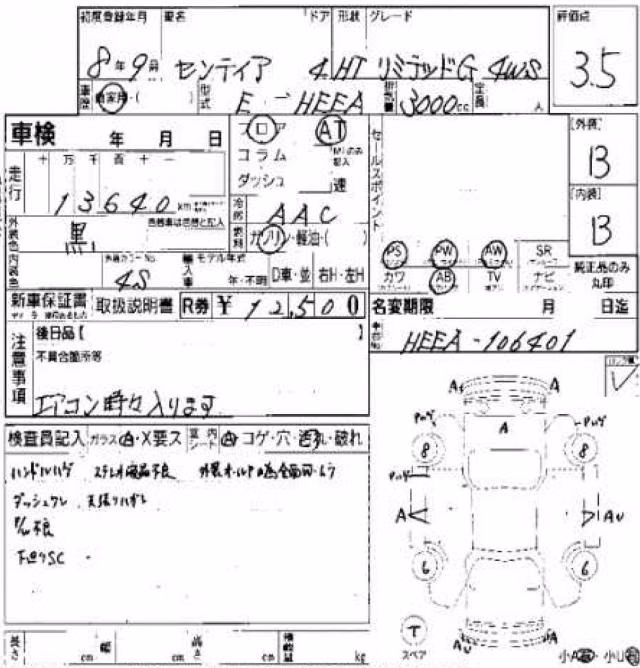 初度登録年月 車名 ドア 形状 グレード 評価点
8年9月 センティア 4 HT リミテッドG 4WS 3.5
車歴 自家用・( ) 型式 E-HEEA 排気量 3000cc 定員 人
車検 年 月 日 フロア AT
コラム
ダッシュ 速
セールスポイント
[外装] B
[内装] B
走行 十 万 千 百 十 一
13640 km
冷房 AAC
外装色 黒 燃料 ガソリン・軽油・( )
PS PW AW SR
カワ AB TV ナビ
純正品のみ丸印
内装色 外装カラーNo. 4S 輸入車 モデル年式 年・不明 D車・並 右H・左H
新車保証書 取扱説明書 R券 ¥12,500 名変期限 月 日迄
車台No. HEEA-106401
注意事項 後日品【 】
不具合箇所等
エアコン時々入ります
検査員記入 ガラス A・X要ス 室内シート A コゲ・穴・破れ
ハンドルハゲ ステレオ液晶不良
ダッシュワレ 天張りハガレ
下廻りSC
A A
A
8 8
A A
6 6
T
スペア
長さ cm 幅 cm 高さ cm 積載量 kg